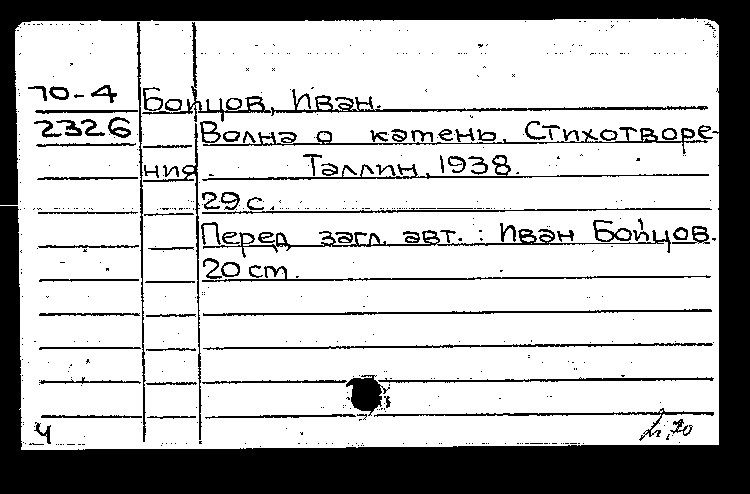 70-4 Бойцов, Иван.
2326 Волна о камень. Стихотворе-
ния. Таллин, 1938.
29 с.
Перед загл. авт.: Иван Бойцов.
20 cm.
Ч